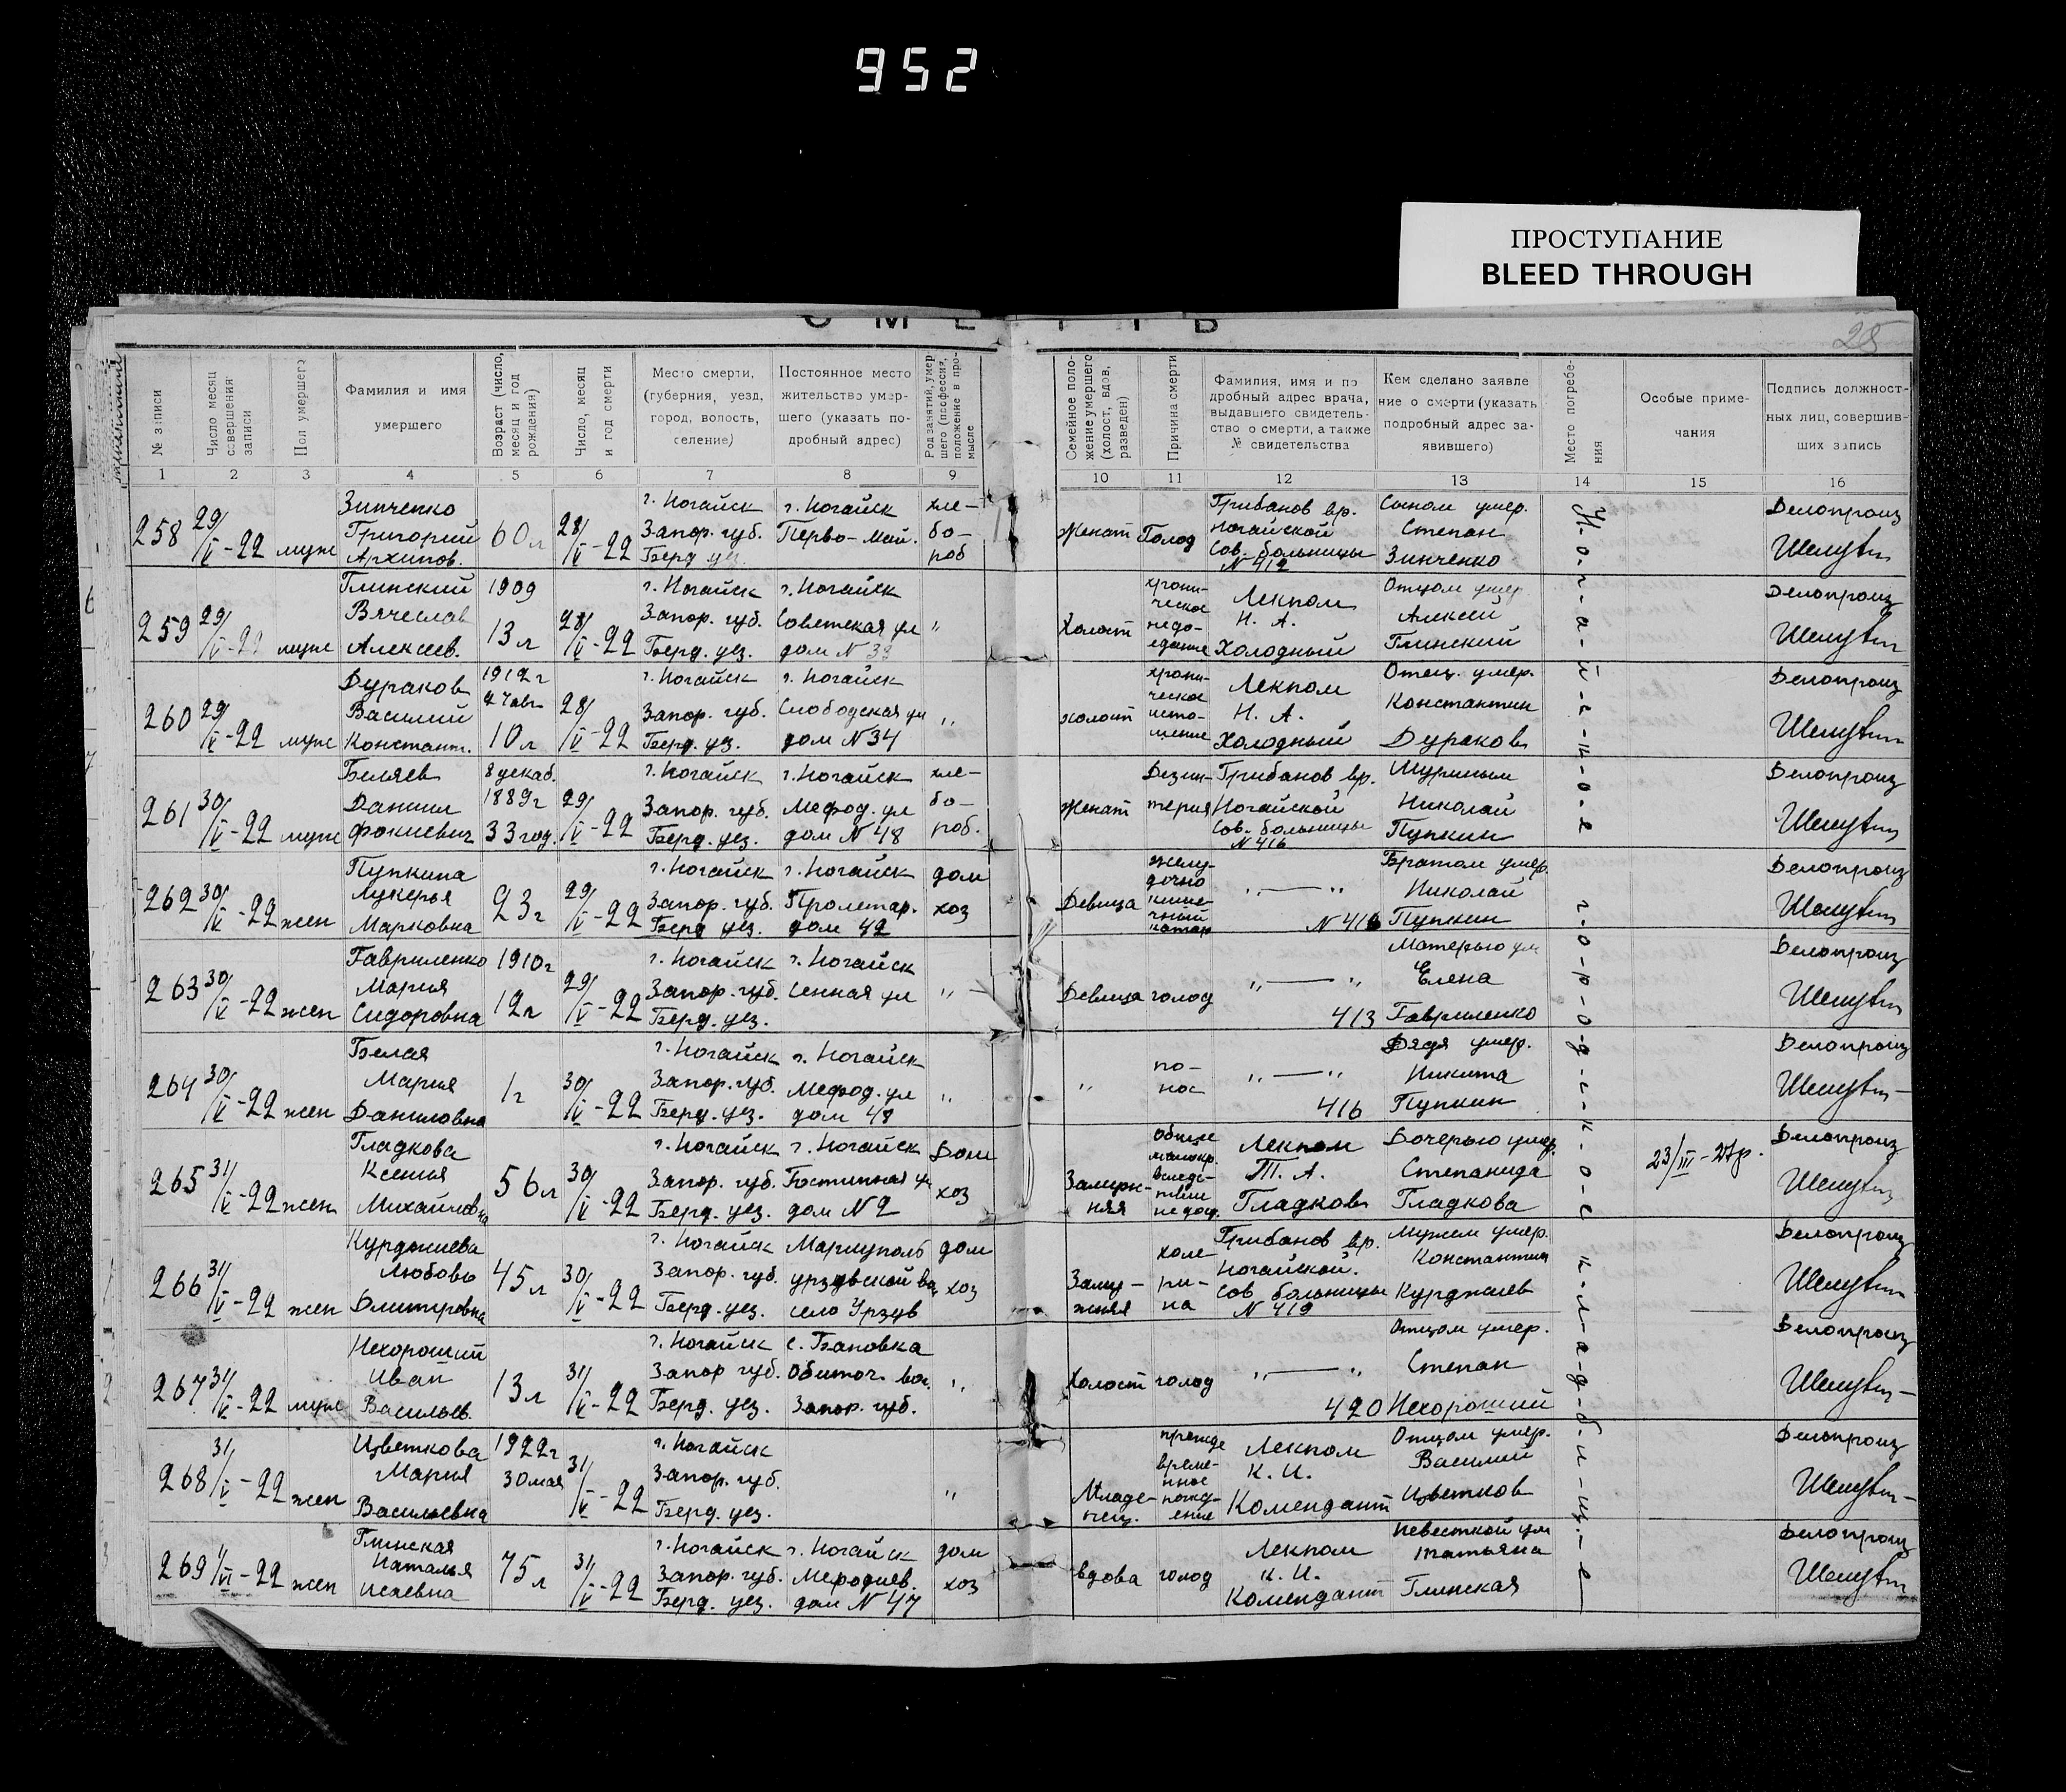 952
ПРОСТУПАНИЕ
BLEED THROUGH
28
№ записи
Число месяц совершения записи
Пол умершего
Фамилия и имя умершего
Возраст (число, месяц и год рождения)
Число, месяц и год смерти
Место смерти, (губерния, уезд, город, волость, селение)
Постоянное место жительство умершего (указать подробный адрес)
Род занятий, умершего (профессия, положение в промысле
Семейное положение умершего (холост, вдов, разведен)
Причина смерти
Фамилия, имя и подробный адрес врача, выдавшего свидетельство о смерти, а также № свидетельства
Кем сделано заявление о смерти (указать подробный адрес заявившего)
Место погребения
Особые примечания
Подпись должностных лиц, совершивших запись
1 2 3 4 5 6 7 8 9 10 11 12 13 14 15 16
258 29/V-22 муж Зинченко Григорий Архипов. 60 л 28/V-22 г. Ногайск Запор. губ. Берд уез. г. Ногайск Перво-Май. хле-бо-роб Женат Голод Грибанов вр. Ногайской Сов. больницы N 412 Сыном умер. Степан Зинченко Делопроиз
259 29/V-22 муж Глинский Вячеслав Алексеев. 1909 13 л 28/V-22 г. Ногайск Запор. губ. Берд. уез. г. Ногайск Советская ул дом N 33 " Холост хрони-ческое недо-едание Лекпом Н. А. Холодный Отцом умер Алексей Глинский Делопроиз
260 29/V-22 муж Дураков Василий Констант. 1912 г 10 л 28/V-22 г. Ногайск Запор. губ. Берд. уз. г. Ногайск Слободская ул дом N 34 " холост хрони-ческое исто-щение Лекпом Н. А. Холодный Отец. умер. Константин Дураков Делопроиз
261 30/V-22 муж Беляев Даниил Фокиевич 8 декаб. 1889 г 33 год. 29/V-22 г. Ногайск Запор. губ. Берд. уез. г. Ногайск Мефод. ул дом N 48 хле-бо-роб. Женат Дезин-терия Грибанов вр. Ногайской Сов. больницы N 416 Шуриным Николай Пупкин Делопроиз
262 30/V-22 жен Пупкина Лукерья Марковна 23 г 29/V-22 г. Ногайск Запор. губ. Берд уез. г. Ногайск Пролетар. дом 42 дом хоз Девица желу-дочно кише-чный катар " — " N 416 Братом умер. Николай Пупкин Делопроиз
263 30/V-22 жен Гавриленко Мария Сидоровна 1910 г 12 г 29/V-22 г. Ногайск Запор. губ. Берд. уез. г. Ногайск Сенная ул " Девица голод " — " 413 Матерью ум Елена Гавриленко Делопроиз
264 30/V-22 жен Белая Мария Даниловна 1 г 30/V-22 г. Ногайск Запор. губ. Берд. уез. г. Ногайск Мефод. ул дом 48 " " по-нос " — " 416 Дядя умер. Никита Пупкин Делопроиз
265 31/V-22 жен Гладкова Ксения Михайловна 56 л 30/V-22 г. Ногайск Запор. губ. Берд. уез. г. Ногайск Гостинная ул дом N 2 Дом хоз Замуж-няя общее малокр. вследс-твие недоед. Лекпом Т. А. Гладков Дочерью умер. Степанида Гладкова 23/III Делопроиз
266 31/V-22 жен Курджиева Любовь Дмитровна 45 л 30/V-22 г. Ногайск Запор. губ. Берд. уез. Мариуполь урзувской вол село Урзув дом хоз Заму-жняя холе-ри-на Грибанов вр. Ногайской. Сов. больницы N 419 Мужем умер. Константин Курджиев Делопроиз
267 31/V-22 муж Нехороший Иван Васильев. 13 л 31/V-22 г. Ногайск Запор губ. Берд. уез. с. Бановка Обиточ. вол. Запор. губ. " Холост голод " — " 420 Отцом умер. Степан Нехороший Делопроиз
268 31/V-22 жен Цветкова Мария Васильевна 1922 г 30 мая 31/V-22 г. Ногайск Запор. губ. Берд. уез. " Младе-нец. прежде време-нное рожд-ение Лекпом К. И. Комендант Отцом умер. Василий Цветков Делопроиз
269 1/VI-22 жен Глинская Наталья Исаевна 75 л 31/V-22 г. Ногайск Запор. губ. Берд. уез. г. Ногайск Мефодиев. дом N 47 дом хоз вдова голод Лекпом К. И. Комендант Невесткой ум Татьяна Глинская Делопроиз
Н-о-г-а-й-с-к-о-е г-о-р-о-д-с-к-о-е к-л-а-д-б-и-щ-е